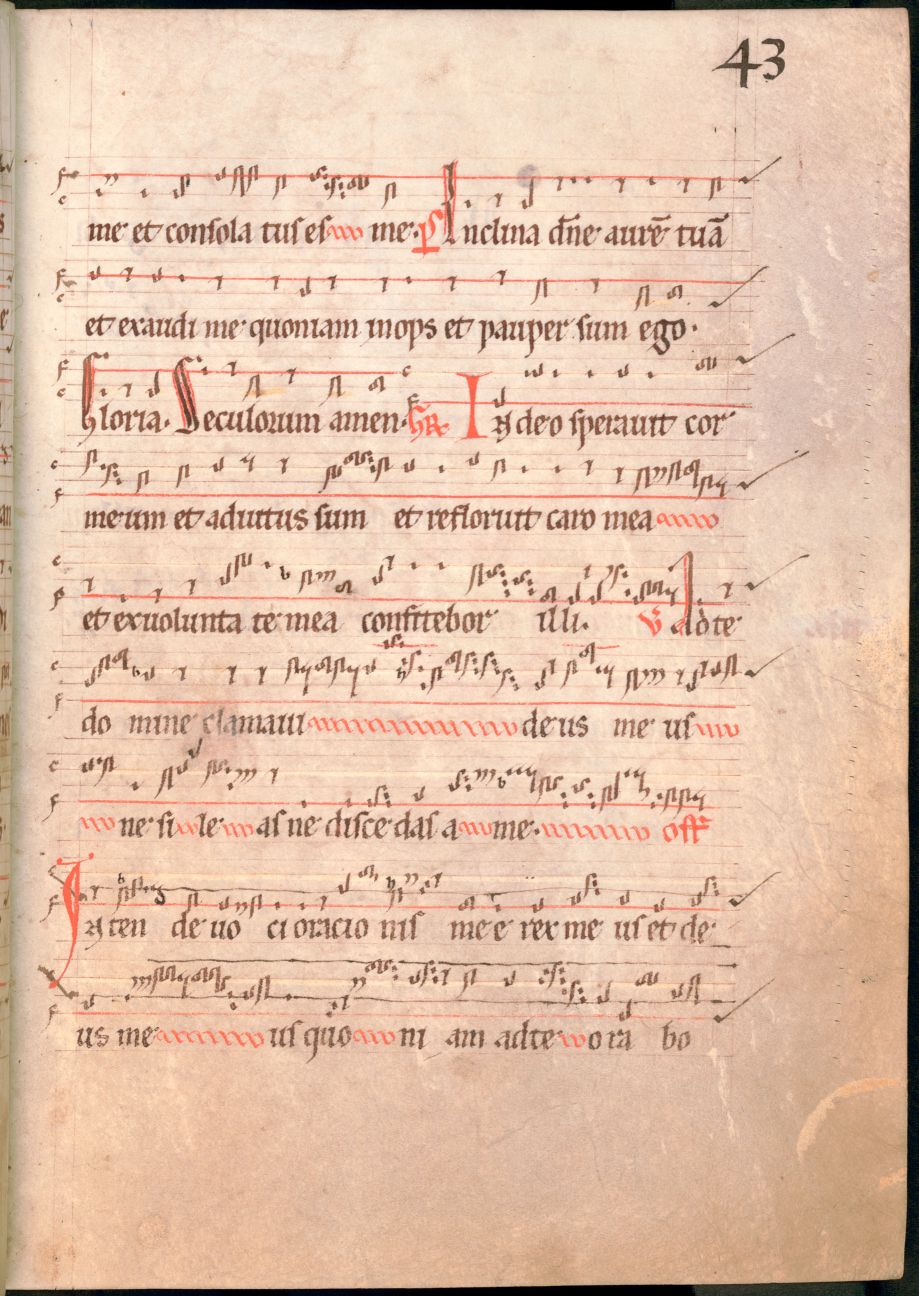 43
me et consola tus es me. ps Inclina dn̄e aurē tuā
et exaudi me quoniam inops et pauper sum ego.
Gloria. Seculorum amen. GR In deo sperauit cor
meum et adiutus sum et refloruit caro mea
et ex uolunta te mea confitebor illi. V Ad te
do mine clamaui de us me us
ne si le as ne disce das a me. off
In ten de uo ci oracio nis me e rex me us et de
us me us quo ni am ad te o ra bo